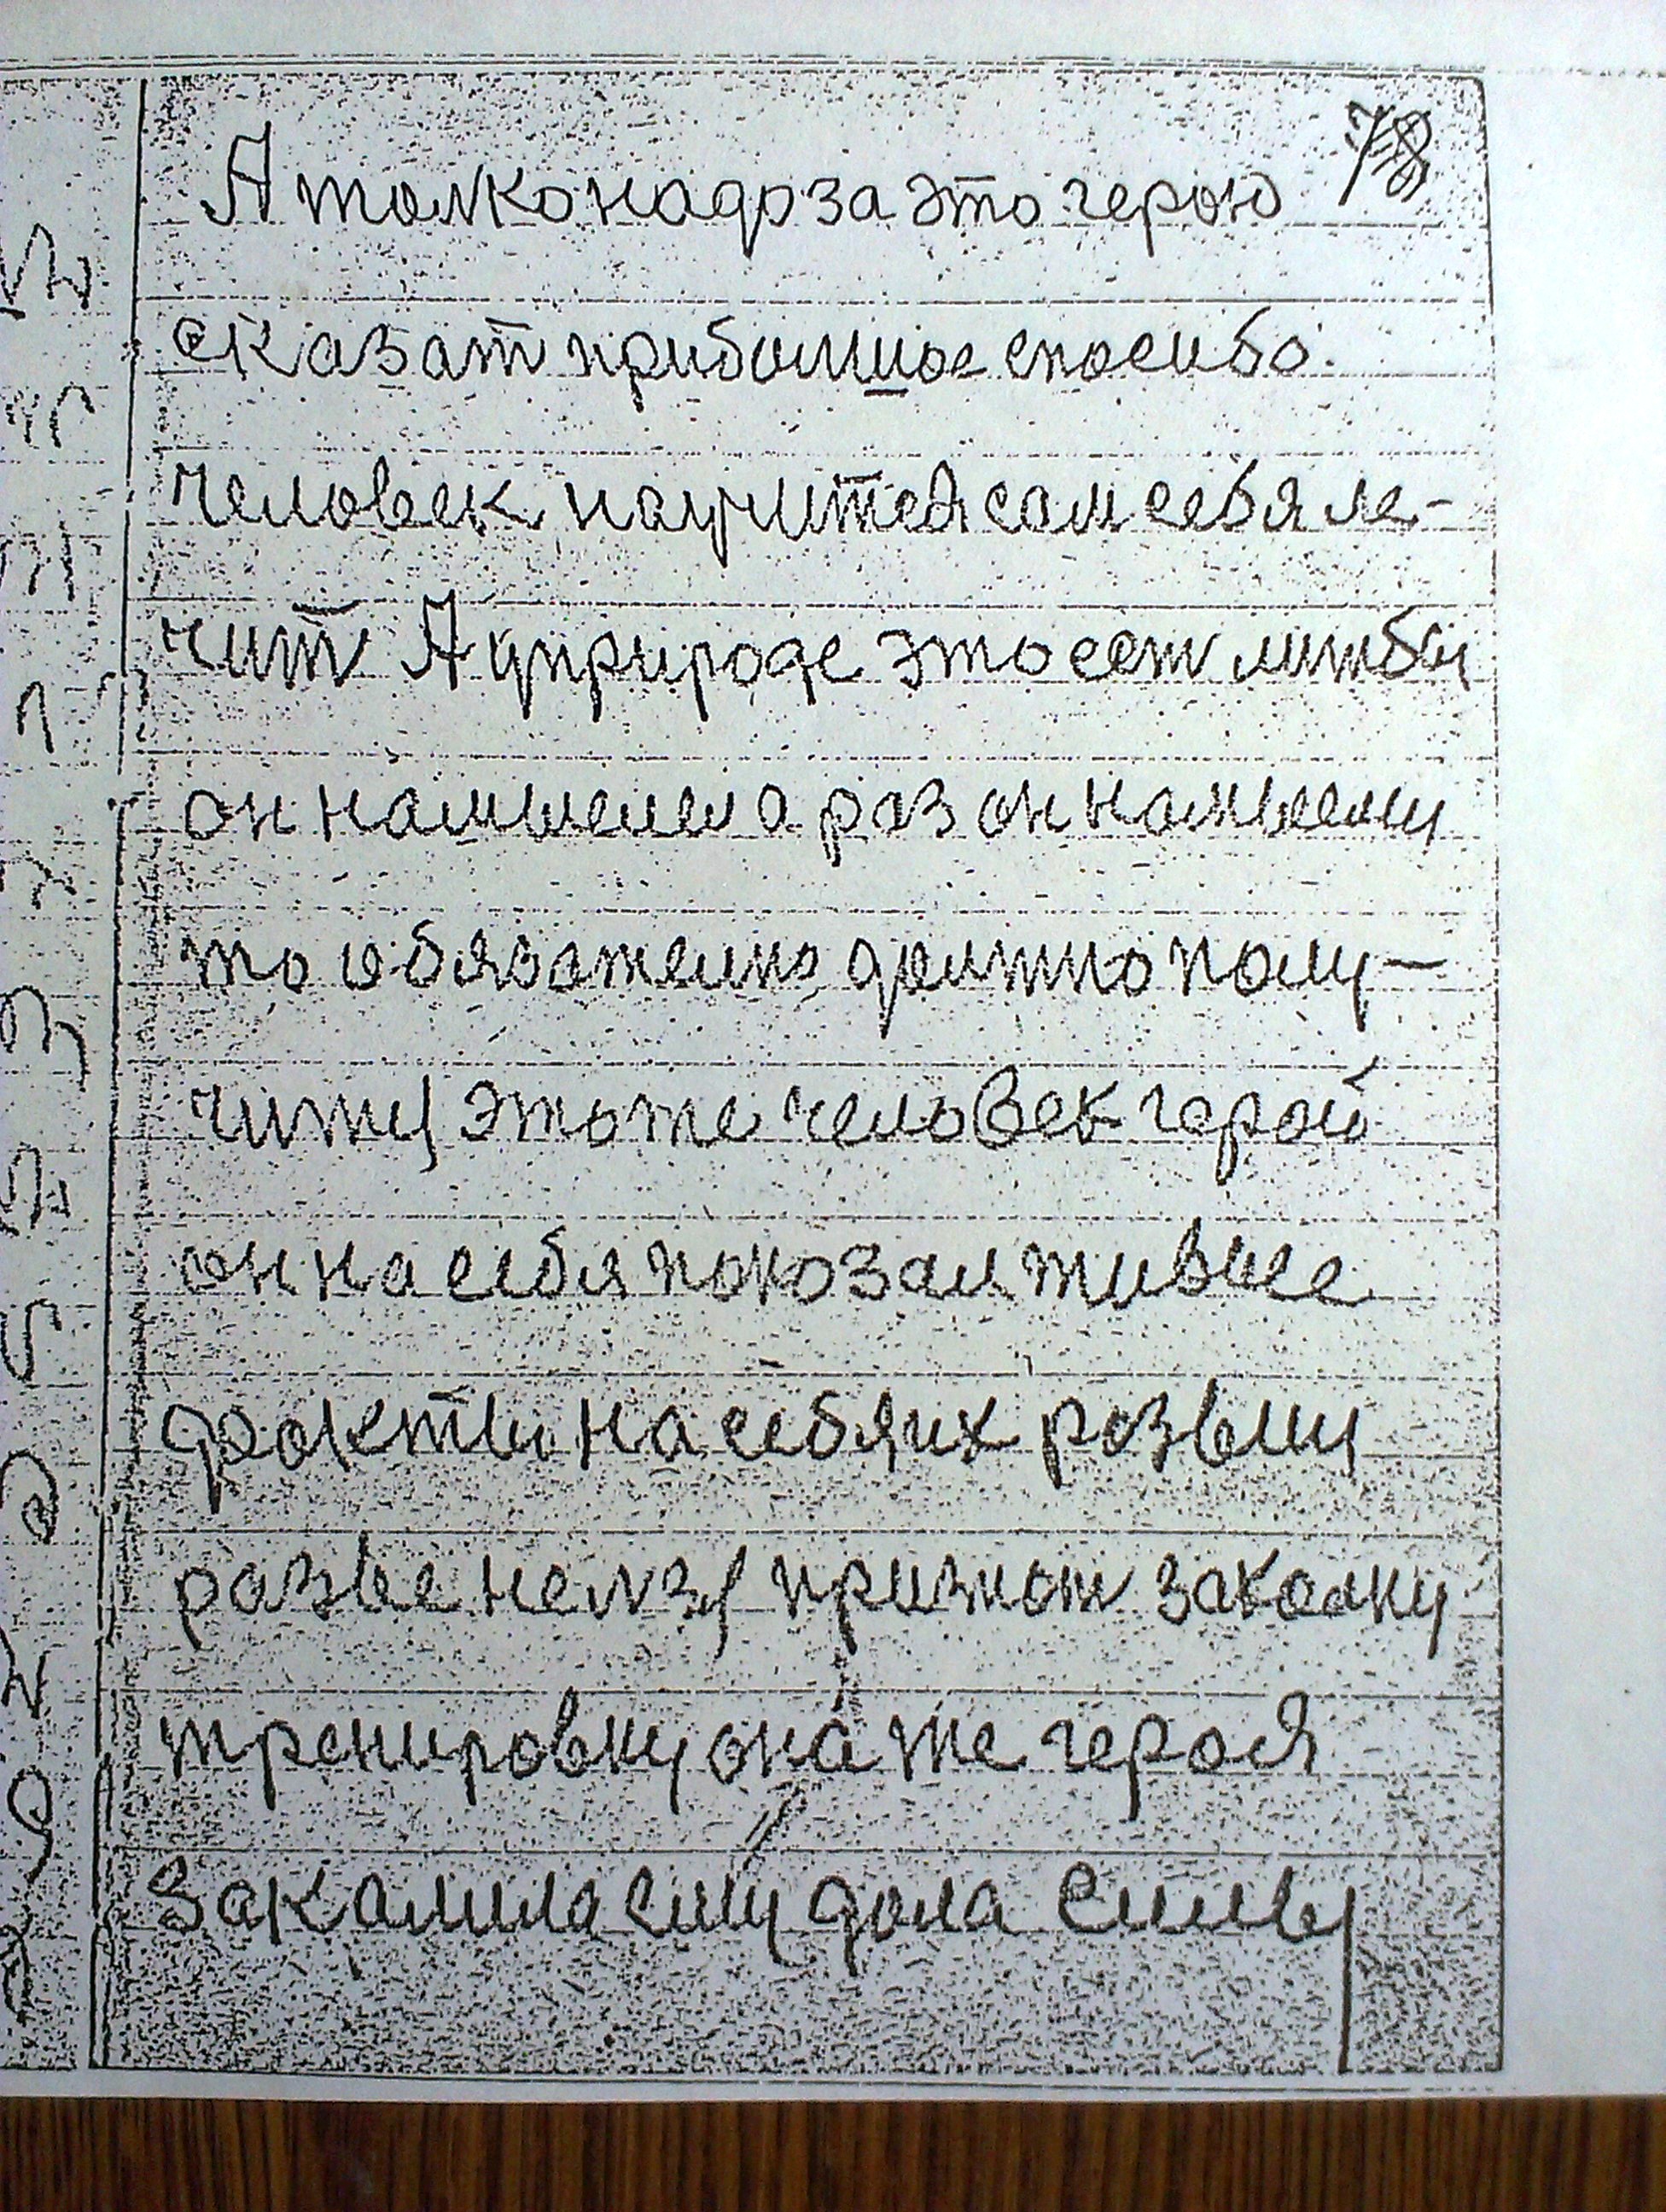 А толко надо за это герою 78
сказат приболшое спосибо.
человек научится сам себя ле-
чит А уприроде это ест литбы
он нашшелея а раз он намысему
то обязателно должно полу-
читц этоже человек герой
он на себя показал живые
факты на себя их розвил
разве нелзя признат закалку
тренировку она же героя
Закалила ему дала силы